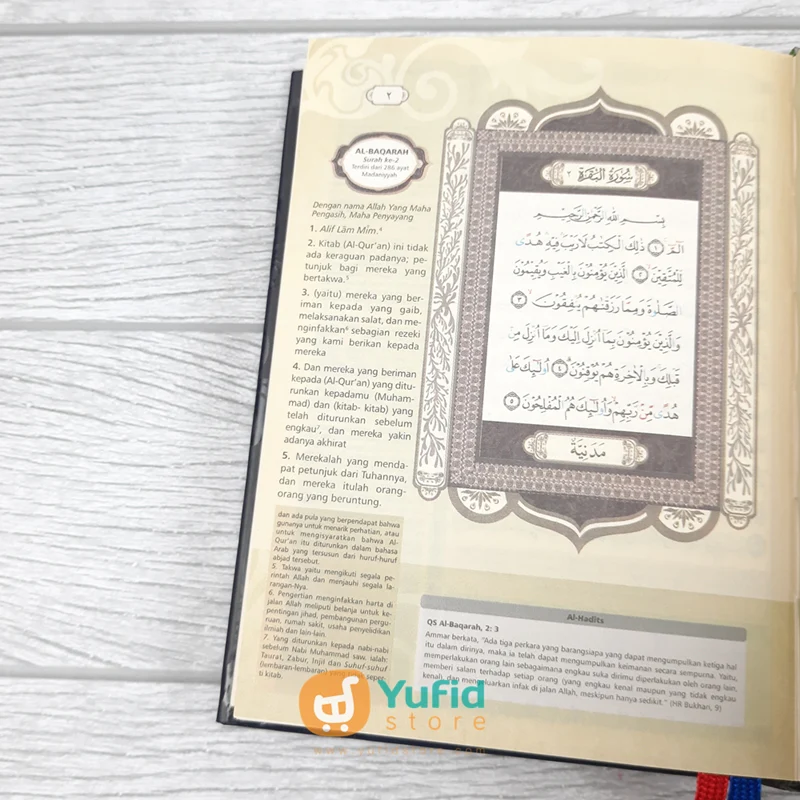 ٢
AL-BAQARAH
Surah ke-2
Terdiri dari 286 ayat
Madaniyyah
Dengan nama Allah Yang Maha
Pengasih, Maha Penyayang
1. Alif Lām Mīm.⁴
2. Kitab (Al-Qur'an) ini tidak
ada keraguan padanya; pe-
tunjuk bagi mereka yang
bertakwa.⁵
3. (yaitu) mereka yang ber-
iman kepada yang gaib,
melaksanakan salat, dan me-
nginfakkan⁶ sebagian rezeki
yang kami berikan kepada
mereka
4. Dan mereka yang beriman
kepada (Al-Qur'an) yang ditu-
runkan kepadamu (Muham-
mad) dan (kitab- kitab) yang
telah diturunkan sebelum
engkau⁷, dan mereka yakin
adanya akhirat
5. Merekalah yang menda-
pat petunjuk dari Tuhannya,
dan mereka itulah orang-
orang yang beruntung.
dan ada pula yang berpendapat bahwa
gunanya untuk menarik perhatian, atau
untuk mengisyaratkan bahwa Al-
Qur'an itu diturunkan dalam bahasa
Arab yang tersusun dari huruf-huruf
abjad tersebut.
5. Takwa yaitu mengikuti segala pe-
rintah Allah dan menjauhi segala la-
rangan-Nya.
6. Pengertian menginfakkan harta di
jalan Allah meliputi belanja untuk ke-
pentingan jihad, pembangunan pergu-
ruan, rumah sakit, usaha penyelidikan
ilmiah dan lain-lain.
7. Yang diturunkan kepada nabi-nabi
sebelum Nabi Muhammad saw. ialah:
Taurat, Zabur, Injil dan Suhuf-suhuf
(lembaran-lembaran) yang
ti kitab.
سُورَةُ الْبَقَرَةِ ٢
بِسْمِ اللَّهِ الرَّحْمَٰنِ الرَّحِيمِ
الٓمٓ ۚ ١ ذَٰلِكَ الْكِتَٰبُ لَا رَيْبَ ۛ فِيهِ ۛ هُدًى
لِّلْمُتَّقِينَ ٢ الَّذِينَ يُؤْمِنُونَ بِالْغَيْبِ وَيُقِيمُونَ
الصَّلَوٰةَ وَمِمَّا رَزَقْنَٰهُمْ يُنفِقُونَ ٣
وَالَّذِينَ يُؤْمِنُونَ بِمَا أُنزِلَ إِلَيْكَ وَمَا أُنزِلَ مِن
قَبْلِكَ وَبِالْآخِرَةِ هُمْ يُوقِنُونَ ٤ أُولَٰئِكَ عَلَىٰ
هُدًى مِّن رَّبِّهِمْ ۖ وَأُولَٰئِكَ هُمُ الْمُفْلِحُونَ ٥
مَدَنِيَّة
Al-Hadits
QS Al-Baqarah, 2: 3
Ammar berkata, "Ada tiga perkara yang barangsiapa yang dapat mengumpulkan ketiga hal
itu dalam dirinya, maka ia telah dapat mengumpulkan keimanan secara sempurna. Yaitu,
memperlakukan orang lain sebagaimana engkau suka dirimu diperlakukan oleh orang lain,
memberi salam terhadap setiap orang (yang engkau kenal maupun yang tidak engkau
kenal), dan mengeluarkan infak di jalan Allah, meskipun hanya sedikit." (HR Bukhari, 9)
Yufid
store